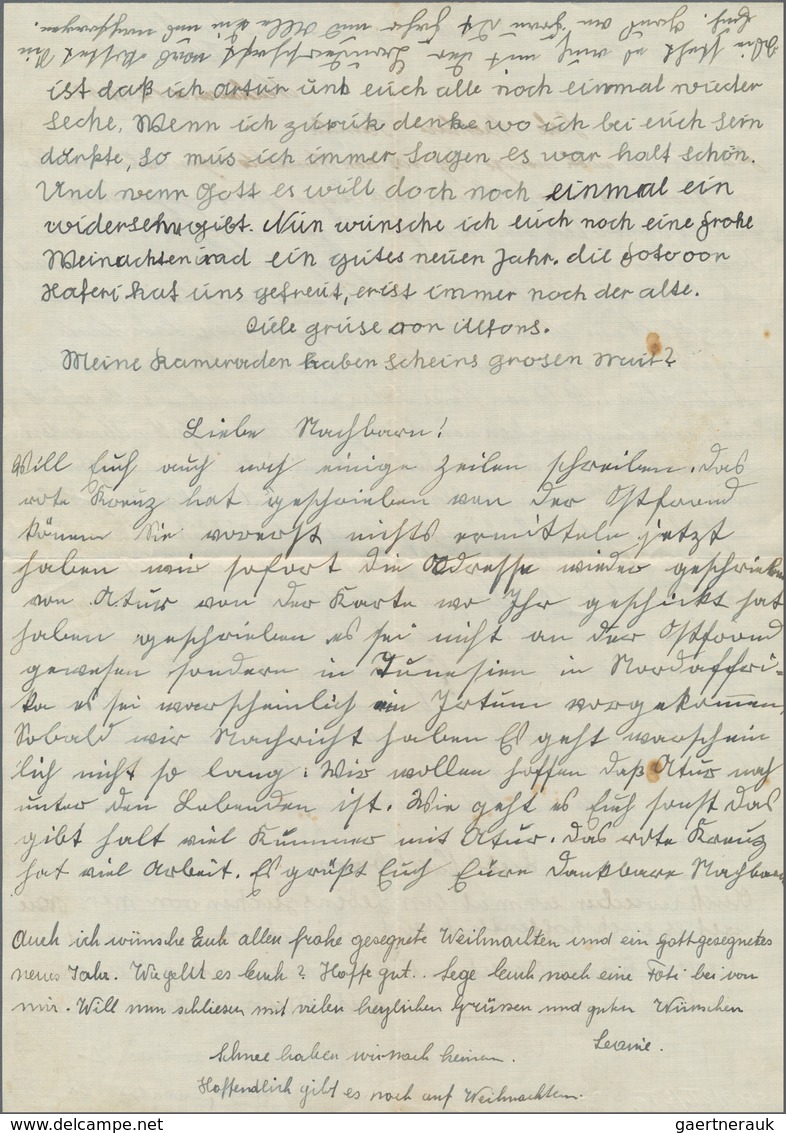 ist daß ich Artur und euch alle noch einmal wieder
seche. Wenn ich zurük denke wo ich bei euch sein
dürkte, so mus ich immer sagen es war halt schön.
Und wenn Gott es will doch noch einmal ein
widersehn gibt. Nun wünsche ich euch noch eine frohe
Weinachten und ein gutes neuen Jahr. die foto von
Haferi hat uns gefreut, er ist immer noch der alte.
Viele grüse von Alfons.
Meine kameraden haben scheins grosen
Liebe Nachbarn!
Will Euch auch noch einige Zeilen schreiben. Das
rote Kreuz hat geschrieben von der Ostfrond
könen Sie vorerst nichts ermitteln jetzt
haben wir sofort die Adresse wieder geschrieben
von Atur von der Karte wo Ihr geschickt hat
haben geschrieben es sei nicht an der Ostfrond
gewesen sondern in Tunesien in Nordaffri-
ka es sei warscheinlich ein Irtum vorgekommen,
Sobald wir Nachricht haben Es geht warschein
lich nicht so lang: Wir wollen hoffen daß Atur noch
unter den Lebenden ist. Wie geht es Euch sonst das
gibt halt viel Kummer mit Atur. Das rote Kreuz
hat viel Arbeit. Es grüßt Euch Eure dankbare Nachbarn
Auch ich wünsche Euh allen frohe gesegnete Weihnachten und ein gottgesegnetes
neues Jahr. Wie geht es Euch? Hoffe gut.. Lege Euch noch eine Foti bei von
mir. Will nun schliesen mit vielen herzlichen Grüssen und guten Wünschen
Leonie.
Schnee haben wir noch keinen.
Hoffendlich gibt es noch auf Weihnachten.
gaertnerauk